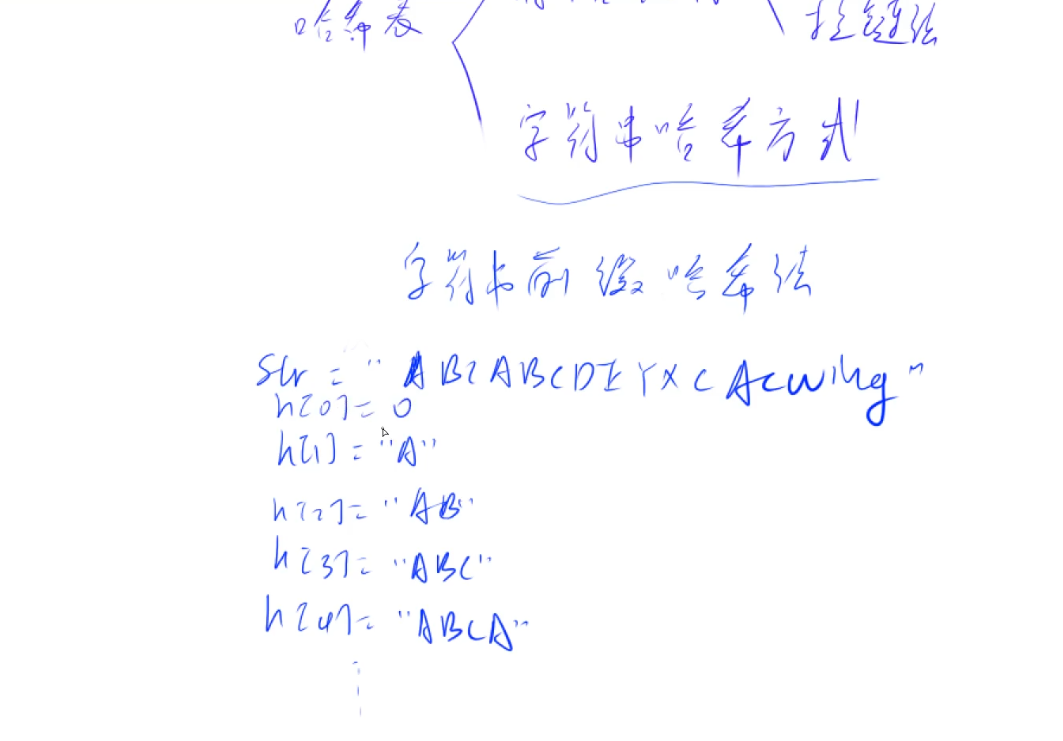 哈希表
拉链法
字符串哈希方式
字符串前缀哈希法
str = "ABCABCDEYXCAcwing"
h[0] = 0
h[1] = "A"
h[2] = "AB"
h[3] = "ABC"
h[4] = "ABCA"